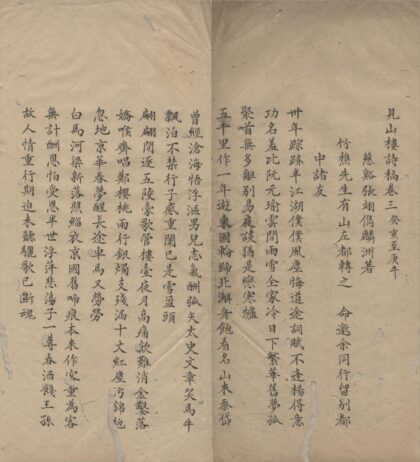 見山樓詩稿卷三 癸亥至庚午
慈谿張翊儁麟洲著
竹樵先生有山左都轉之 命邀余同行留別都
中諸友
卅年踪跡半江湖僕僕風塵悔道途詞賦不逢楊得意
功名羞比阮元瑜雲間雨雪全家冷日下繁華舊夢孤
聚首無多離別易夜談猶是戀寒爐
五千里作一年遊東國輪蹄北澥身飽看名山來泰岱
曾經滄海悟浮漚男兒志氣酬孤矢太史文章笑馬牛
飄泊不禁行子感重關已是雪盈頭
翩翩閒逐五陵豪歌管樓臺夜月高痛飲難消金鑿落
嬌喉齊唱鄭櫻桃雨行銀燭支殘漏十丈紅塵方錦袍
忽地京華春夢醒長途車馬又勞勞
白馬河梁新落照緇衣京國舊啼痕本來作客重為客
無計酬恩怕受恩半世浮萍悲蕩子一尊春酒餞王孫
故人情重行期迫未聽驪歌已斷魂